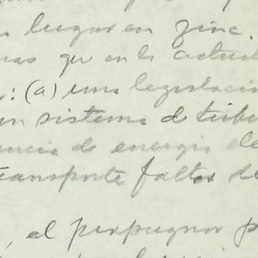 lugar en zinc.
mas que en la actua
: (a) una legislación
un sistema d tribu
encia de energia ele
transporte faltos de
, al propugnar p